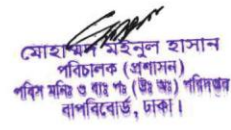 মোহাম্মদ মইনুল হাসান
পরিচালক (প্রশাসন)
পবিস মনিঃ ও ব্যঃ পঃ (উঃ অঃ) পরিদপ্তর
বাপবিবোর্ড, ঢাকা।